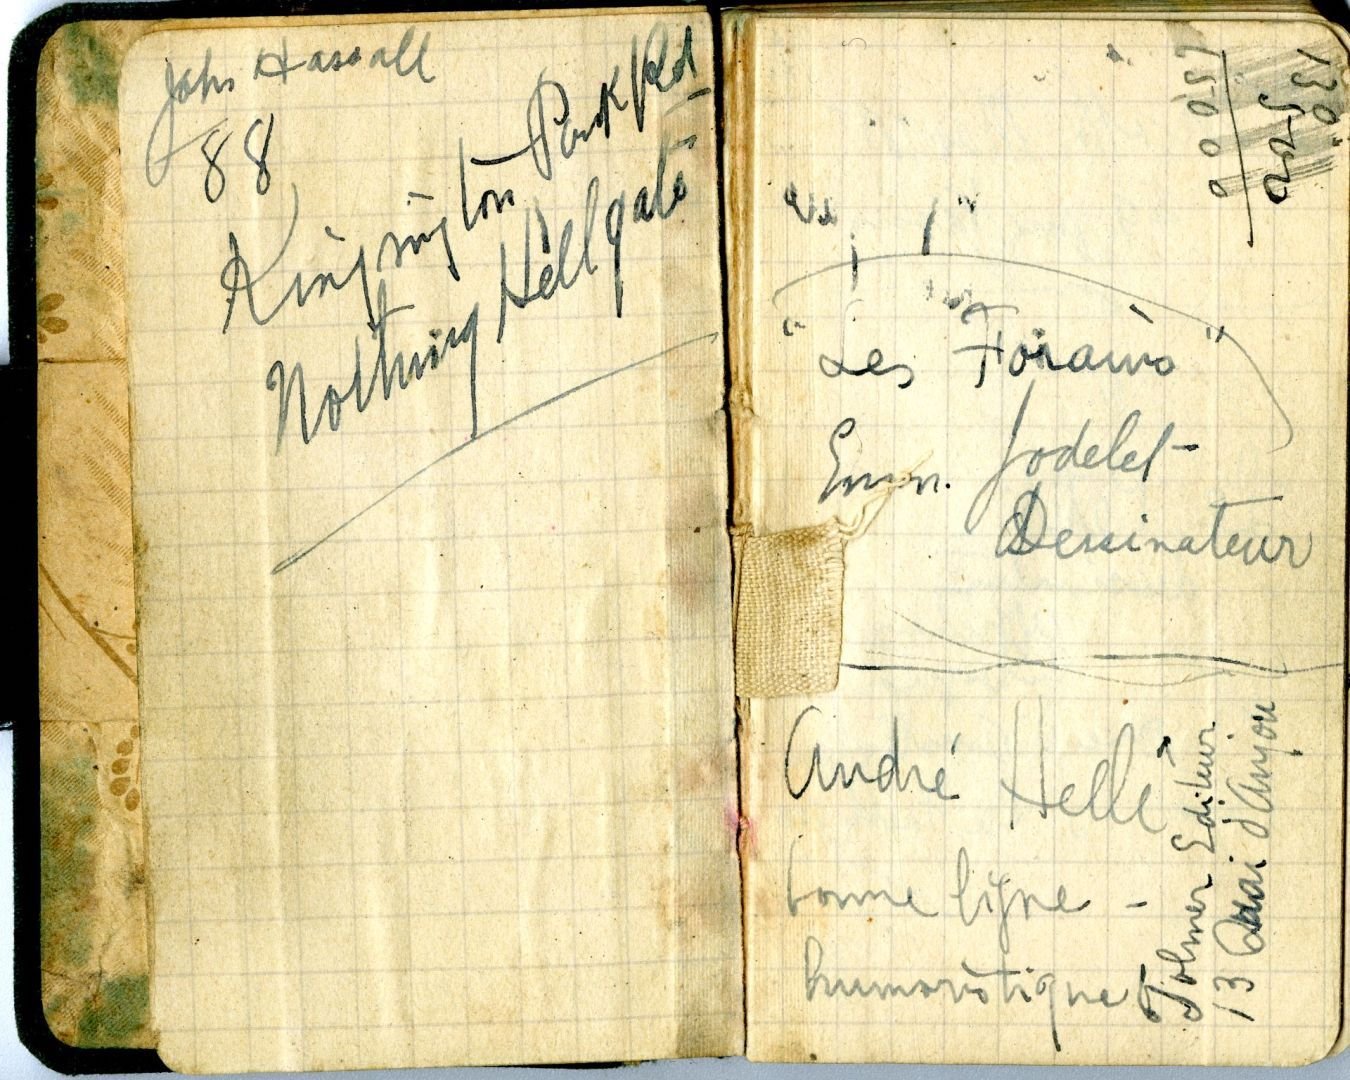 John Hassall
88
Kingsington Park Rd
Notthing Hillgate
130
225
"Les Forains"
Emm. Jodelet
Dessinateur
André Hellé
bonne ligne -
humoristique
Tolmer Editeur
13 Quai d'Anjou